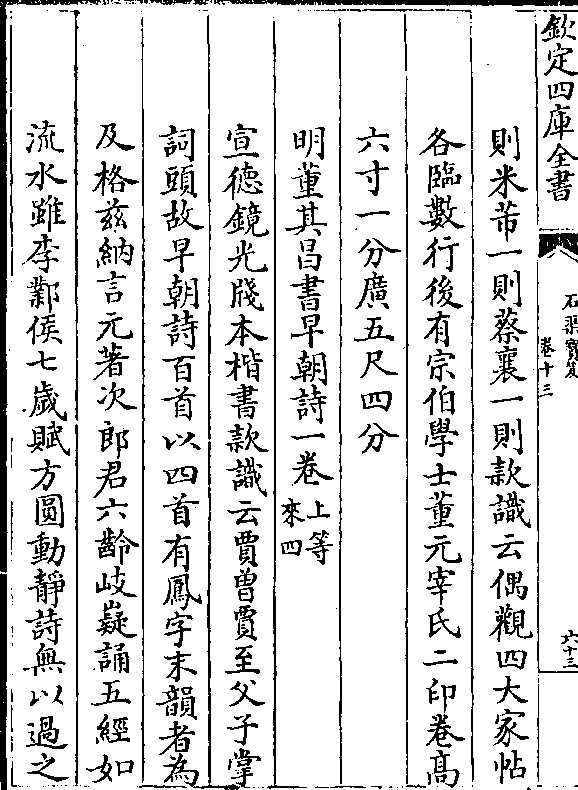 欽定四庫全書
石渠寶笈
卷十三
六十三
則米芾一則蔡襄一則款識云偶觀四大家帖
各臨數行後有宗伯學士董元宰氏二印卷高
六寸一分廣五尺四分
明董其昌書早朝詩一卷上等
來四
宣德鏡光牋本楷書款識云賈曾賈至父子掌
詞頭故早朝詩百首以四首有鳳字末韻者為
及格兹納言元著次郎君六齡岐嶷誦五經如
流水雖李鄴侯七歲賦方圓動靜詩無以過之